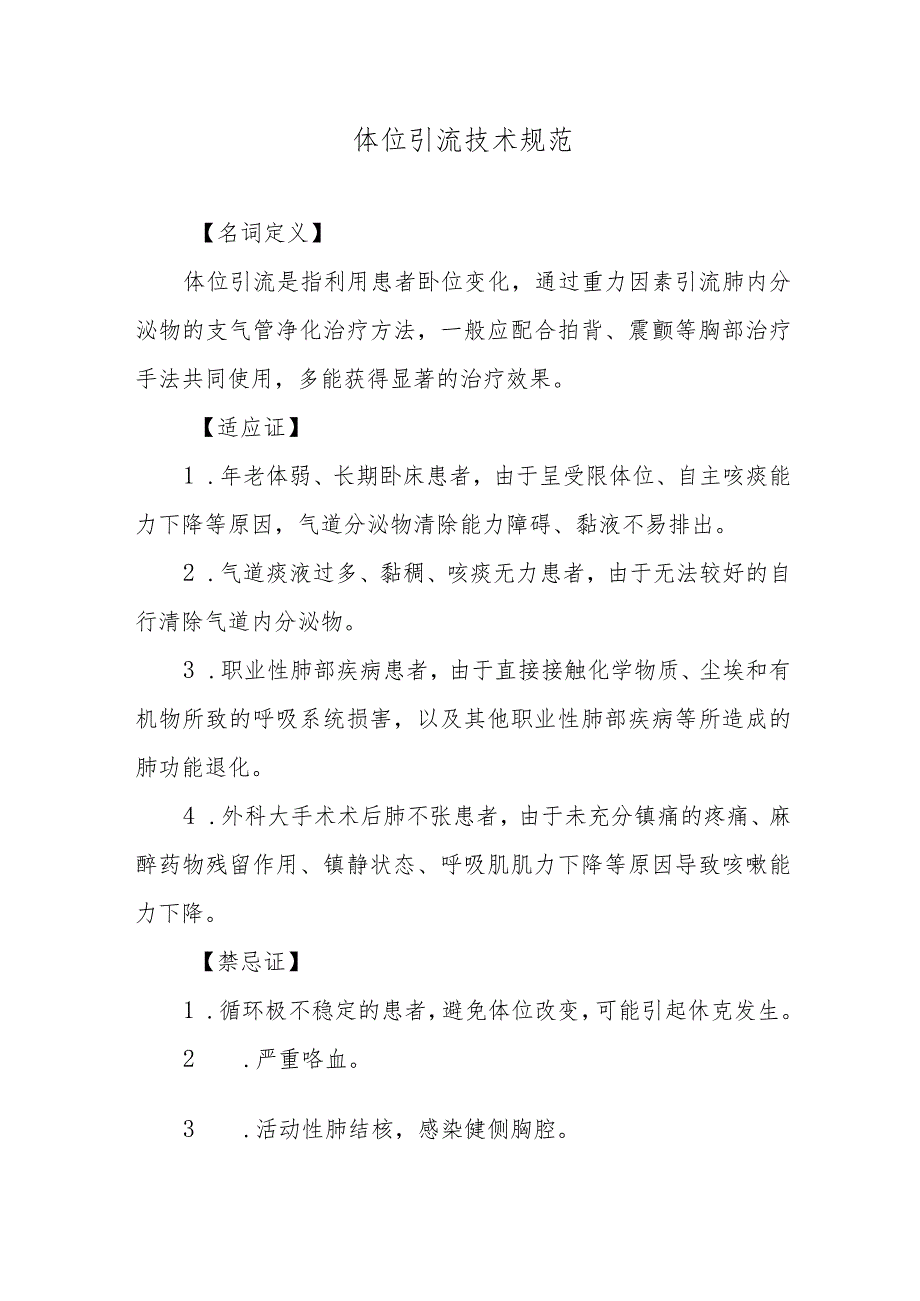 体位引流技术规范
【名词定义】
体位引流是指利用患者卧位变化，通过重力因素引流肺内分
泌物的支气管净化治疗方法，一般应配合拍背、震颤等胸部治疗
手法共同使用，多能获得显著的治疗效果。
【适应证】
1 .年老体弱、长期卧床患者，由于呈受限体位、自主咳痰能
力下降等原因，气道分泌物清除能力障碍、黏液不易排出。
2 .气道痰液过多、黏稠、咳痰无力患者，由于无法较好的自
行清除气道内分泌物。
3 .职业性肺部疾病患者，由于直接接触化学物质、尘埃和有
机物所致的呼吸系统损害，以及其他职业性肺部疾病等所造成的
肺功能退化。
4 .外科大手术术后肺不张患者，由于未充分镇痛的疼痛、麻
醉药物残留作用、镇静状态、呼吸肌肌力下降等原因导致咳嗽能
力下降。
【禁忌证】
1 .循环极不稳定的患者，避免体位改变，可能引起休克发生。
2 .严重咯血。
3 .活动性肺结核，感染健侧胸腔。